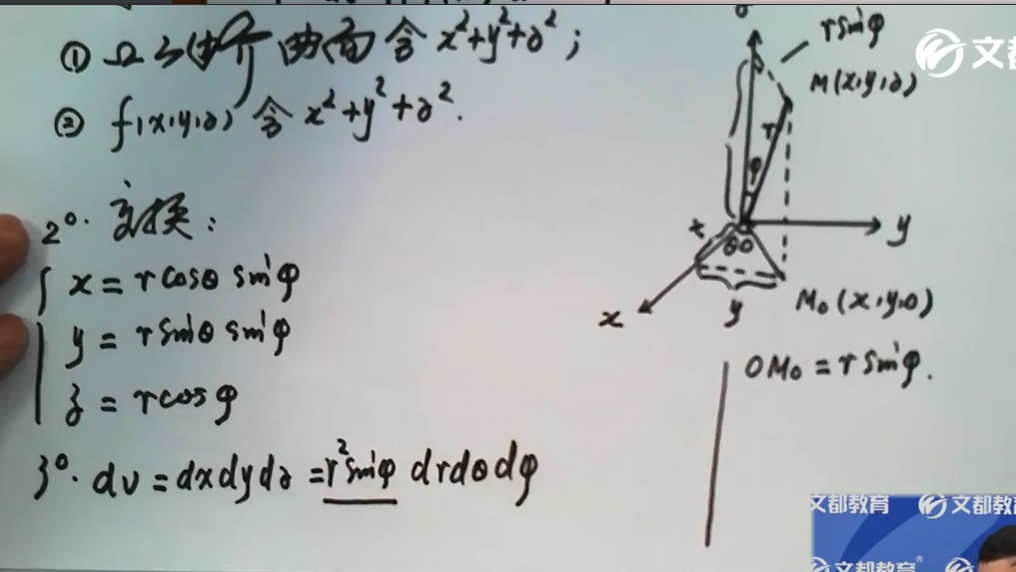 ① Ω之边界曲面含 x²+y²+z²;
② f(x,y,z) 含 x²+y²+z².
2°. 变换:
x = r cosθ sinφ
y = r sinθ sinφ
z = r cosφ
3°. dv = dxdydz = r² sinφ drdθdφ
r sinφ
M(x,y,z)
r
φ
x
θ
y
x
y
M₀(x,y,0)
OM₀ = r sinφ.
文都
文都教育
文都教育
文都教育